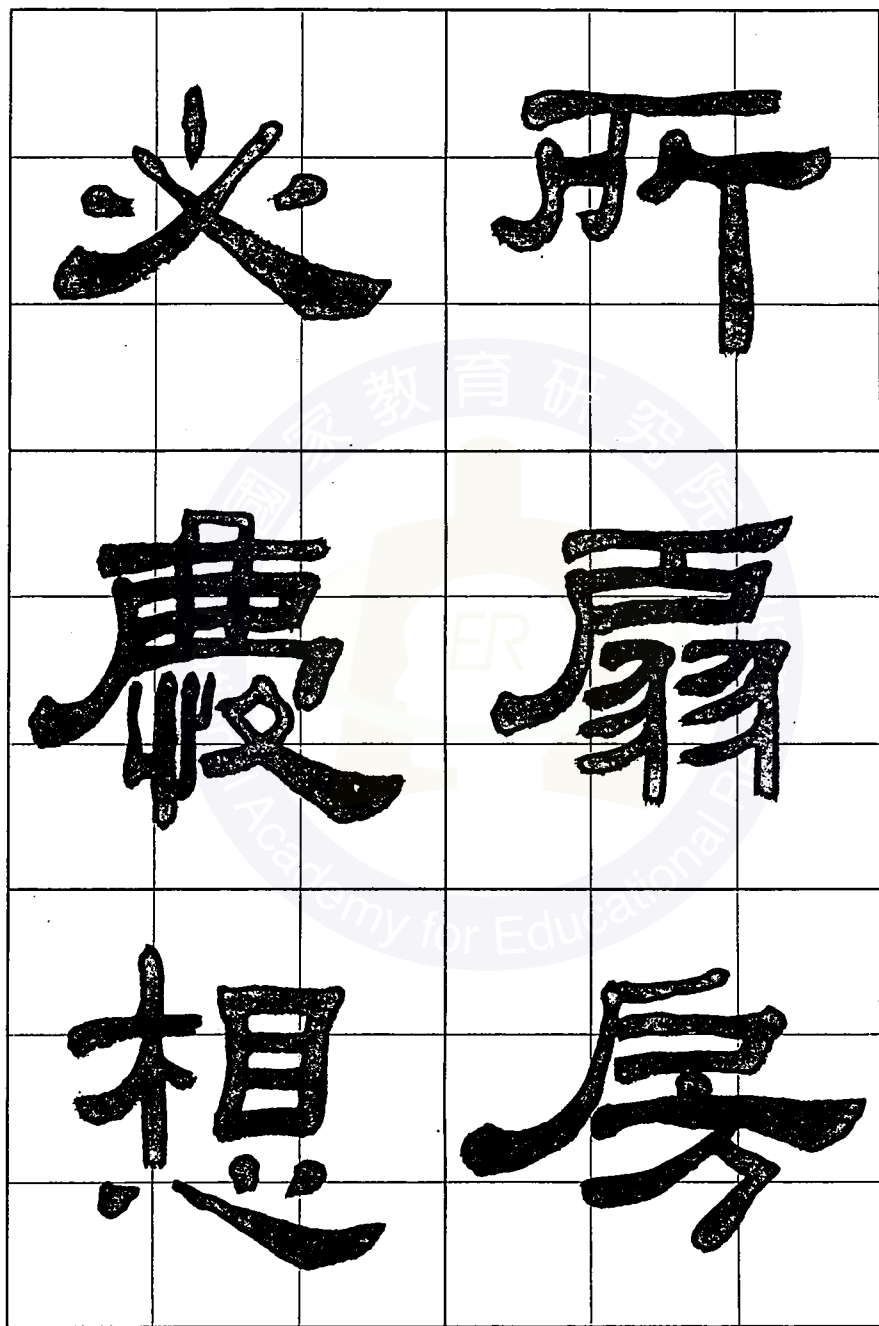 所扇房
必慶想
國家教育研究院
National Academy for Educational